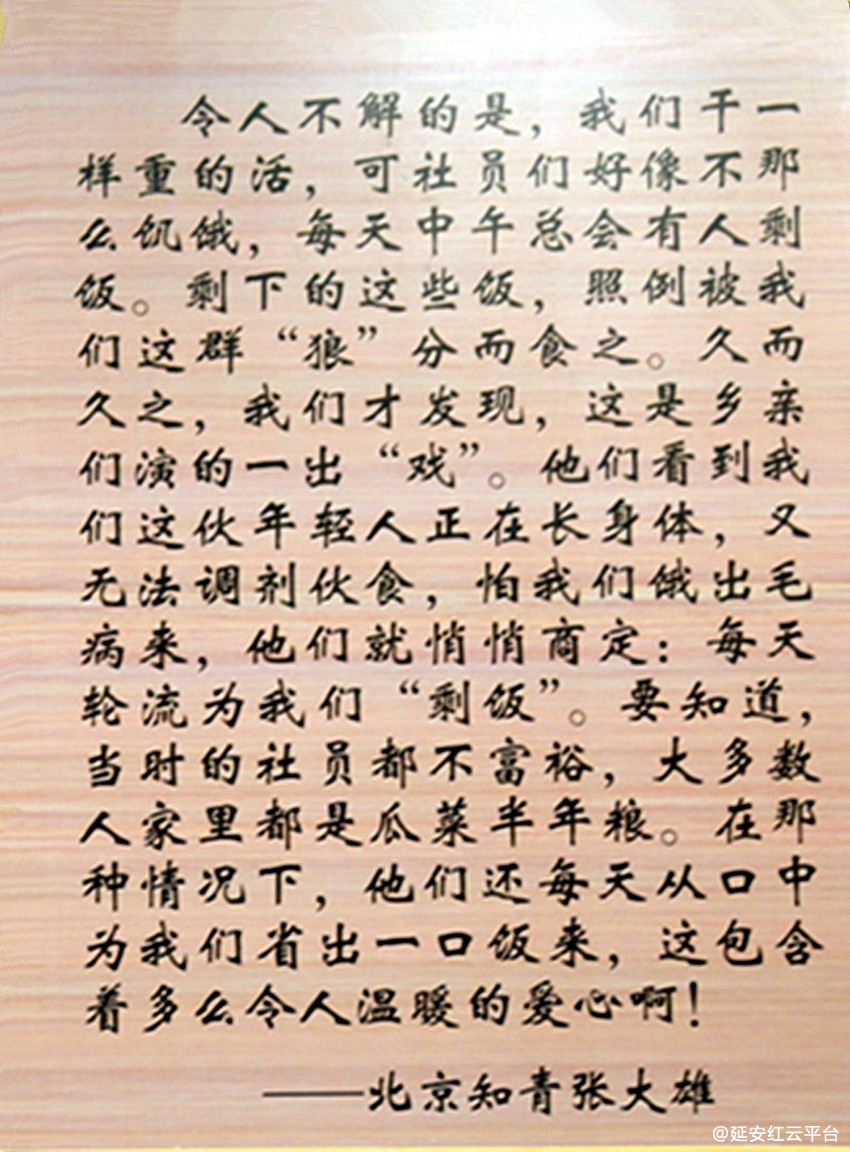 令人不解的是，我们干一
样重的活，可社员们好像不那
么饥饿，每天中午总会有人剩
饭。剩下的这些饭，照例被我
们这群“狼”分而食之。久而
久之，我们才发现，这是乡亲
们演的一出“戏”。他们看到我
们这伙年轻人正在长身体，又
无法调剂伙食，怕我们饿出毛
病来，他们就悄悄商定：每天
轮流为我们“剩饭”。要知道，
当时的社员都不富裕，大多数
人家里都是瓜菜半年粮。在那
种情况下，他们还每天从口中
为我们省出一口饭来，这包含
着多么令人温暖的爱心啊！
——北京知青张大雄
@延安红云平台